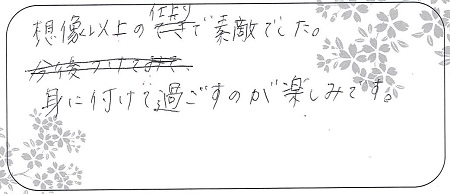 想像以上の仕上りで素敵でした。
身に付けて過ごすのが楽しみです。